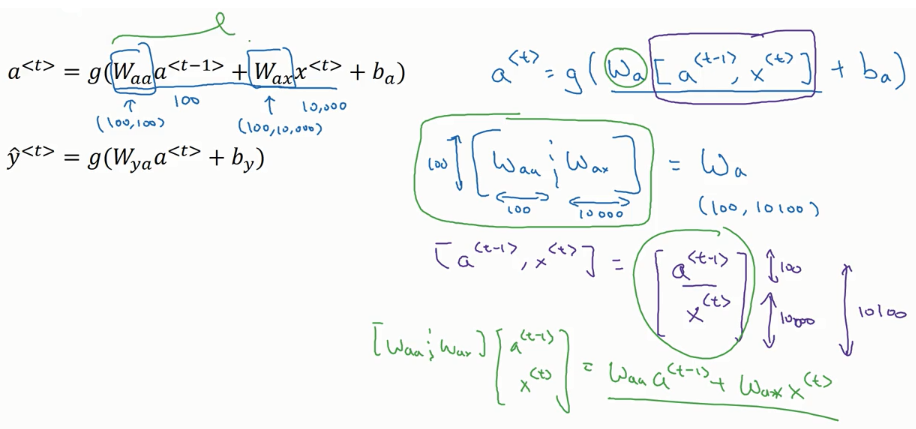 a<t> = g(Waa a<t−1> + Wax x<t> + ba)
↑ 100 ↑ 10,000
(100,100) (100,10,000)
ŷ<t> = g(Wya a<t> + by)
a<t> = g(Wa [a<t-1>, x<t>] + ba)
100 [Waa ¦ Wax] = Wa
100 10000
(100, 10100)
[a<t-1>, x<t>] = [a<t-1> x<t>] 100 10,000 10100
[Waa ¦ Wax] [a<t-1> x<t>] = Waa a<t-1> + Wax x<t>